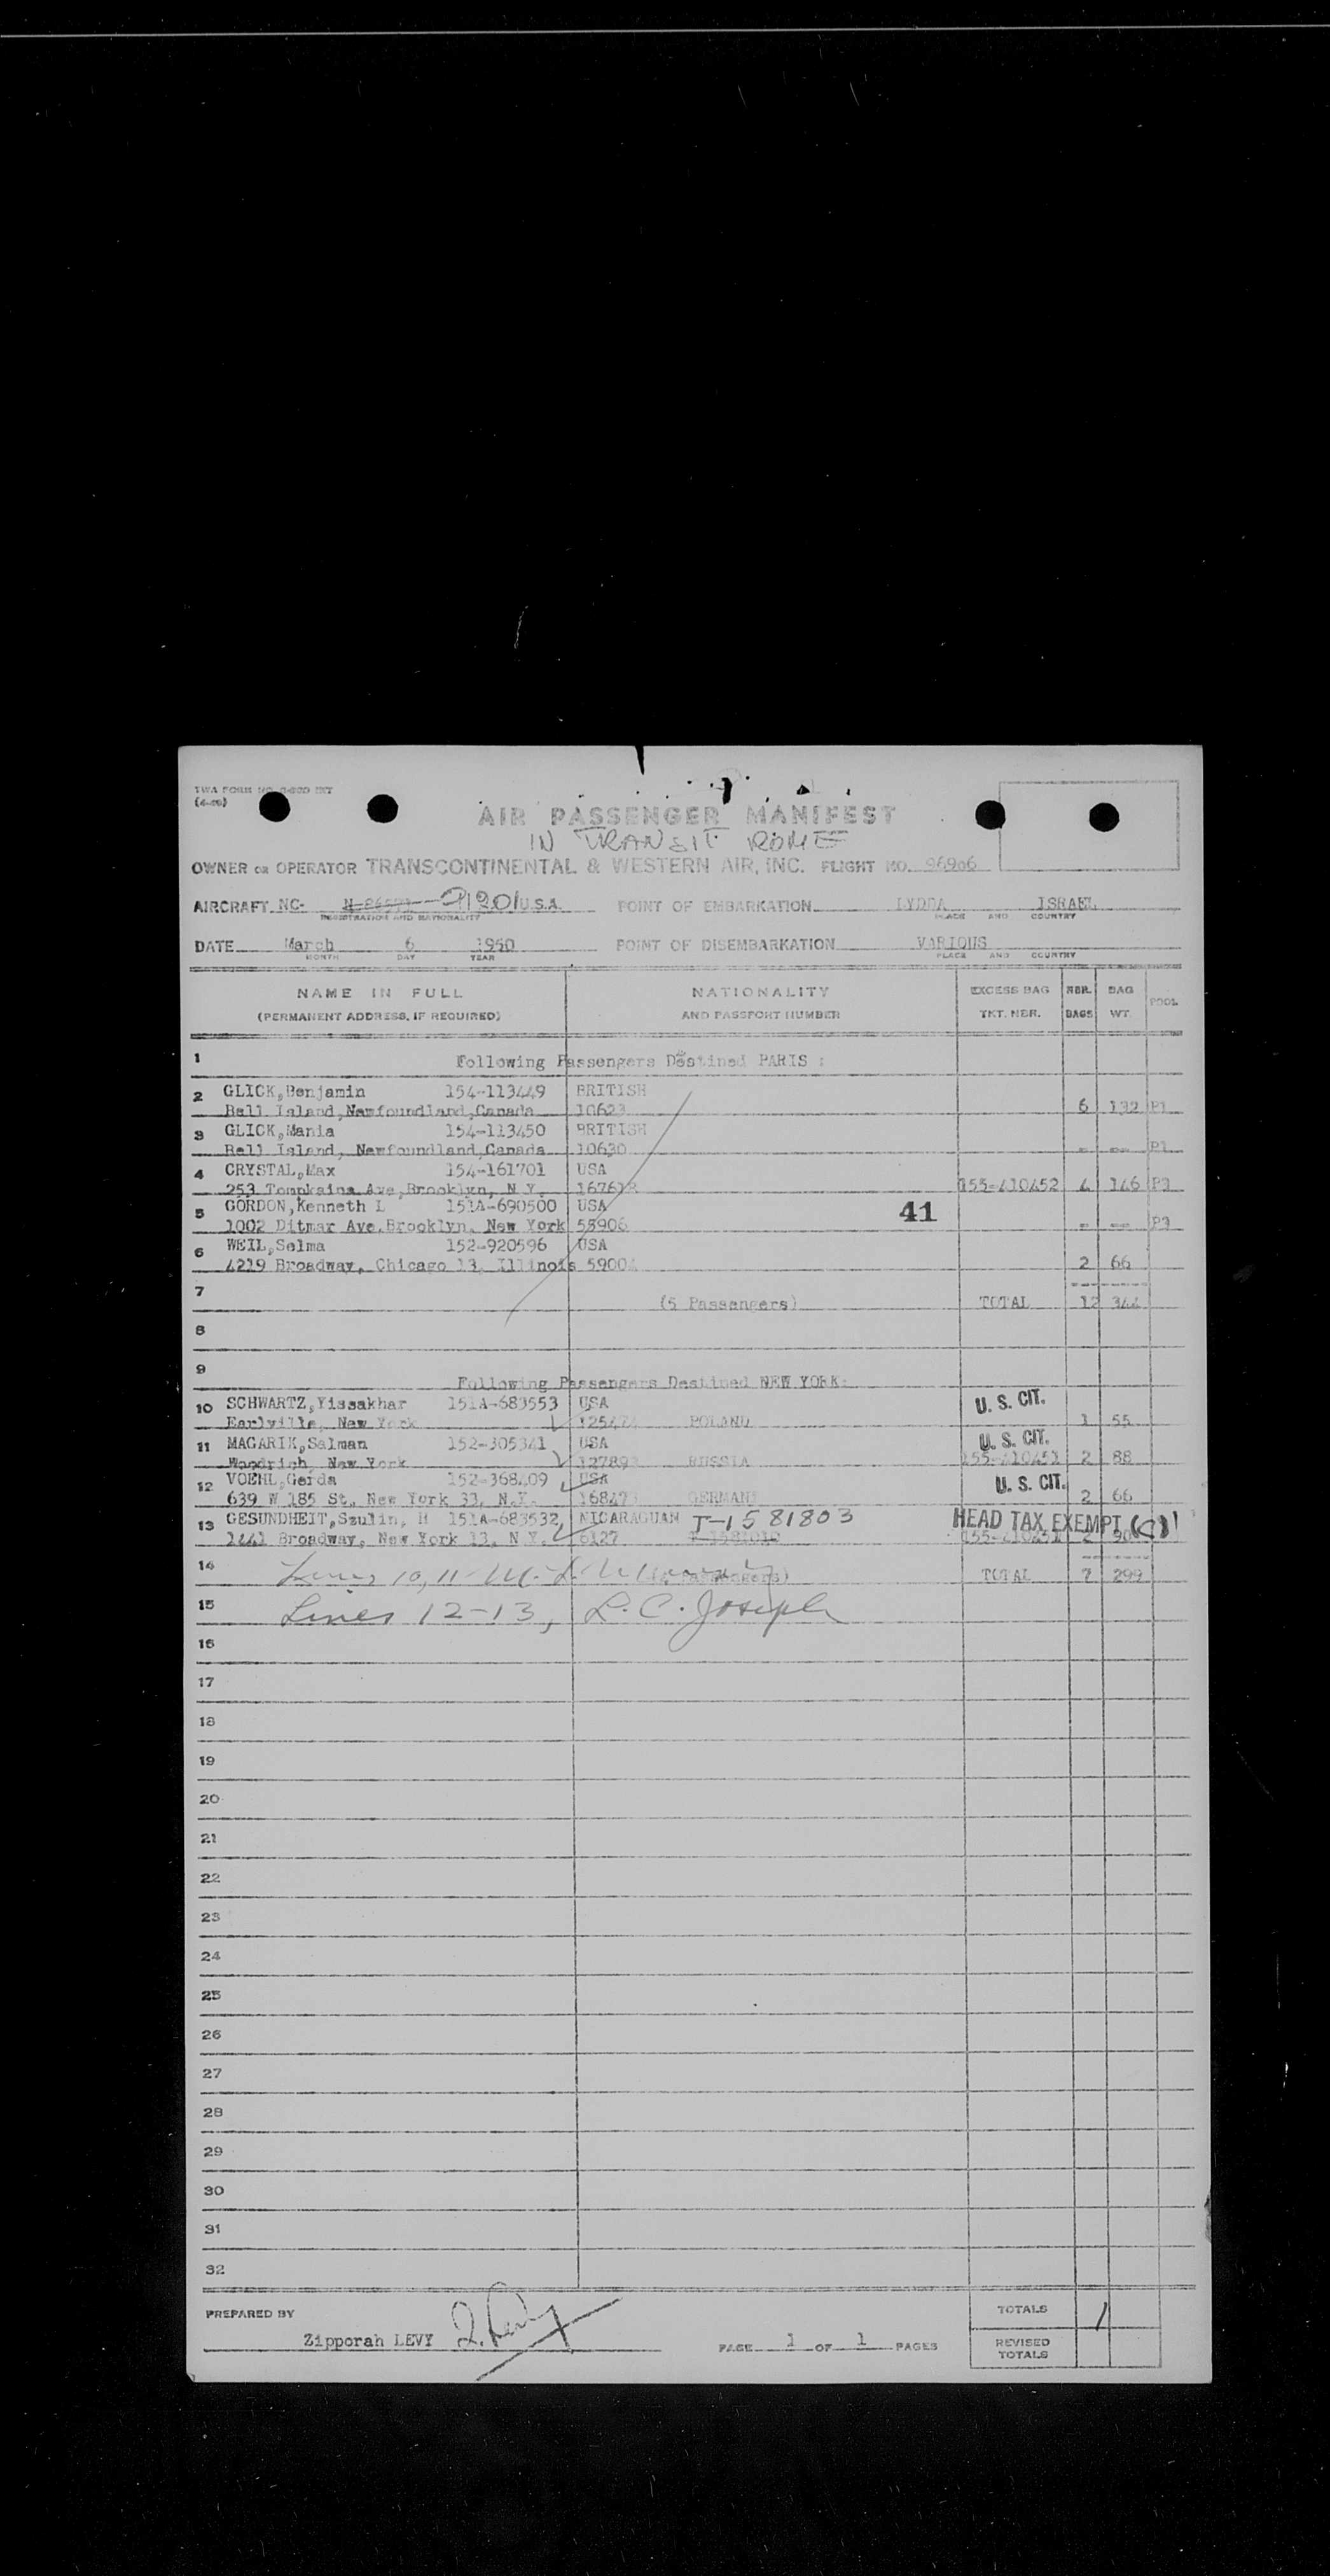 TWA FORM NO.
AIR PASSENGER MANIFEST
IN TRANSIT ROME
OWNER OR OPERATOR TRANSCONTINENTAL & WESTERN AIR, INC. FLIGHT NO. 96906
AIRCRAFT NC- U.S.A. POINT OF EMBARKATION LYDDA ISRAEL
REGISTRATION AND NATIONALITY PLACE AND COUNTRY
DATE March 6 1950 POINT OF DISEMBARKATION VARIOUS
MONTH DAY YEAR PLACE AND COUNTRY
NAME IN FULL NATIONALITY EXCESS BAG NBR. BAG POOL
(PERMANENT ADDRESS, IF REQUIRED) AND PASSPORT NUMBER TKT. NBR. BAGS WT.
1 Following Passengers Destined PARIS :
2 GLICK,Benjamin 154-113449 BRITISH
Bell Island,Newfoundland,Canada 10623 6 132 P1
3 GLICK,Mania 154-113450 BRITISH
Bell Island, Newfoundland,Canada 10630 - -- P1
4 CRYSTAL,Max 154-161701 USA
253 Tompkains Ave,Brooklyn, N.Y. 167618 155-410452 4 146 P3
5 GORDON,Kenneth L 151A-690500 USA 41
1002 Ditmar Ave.Brooklyn, New York 55906 - -- P3
6 WEIL,Selma 152-920596 USA
4219 Broadway, Chicago 13, Illinois 59004 2 66
7 (5 Passengers) TOTAL 12 344
8
9 Following Passengers Destined NEW YORK:
10 SCHWARTZ,Yissakhar 151A-683553 USA U. S. CIT.
Earlville, New York POLAND 1 55
11 MAGARIK,Salman 152-305341 USA U. S. CIT.
Woodrich, New York RUSSIA 155-410451 2 88
12 VOEHL,Gerda 152-368409 USA U. S. CIT.
639 W 185 St, New York 33, N.Y. GERMANY 2 66
13 GESUNDHEIT,Szulin, H 151A-683532 NICARAGUAN T-1581803 HEAD TAX EXEMPT
1441 Broadway, New York 13, N.Y. 6127 155-410451 2 90
14 Lines 10, 11 (4 Passengers) TOTAL 7 299
15 Lines 12-13, L. C. Joseph
16
17
18
19
20
21
22
23
24
25
26
27
28
29
30
31
32
PREPARED BY TOTALS
Zipporah LEVY Z. Levy PAGE 1 OF 1 PAGES REVISED
TOTALS